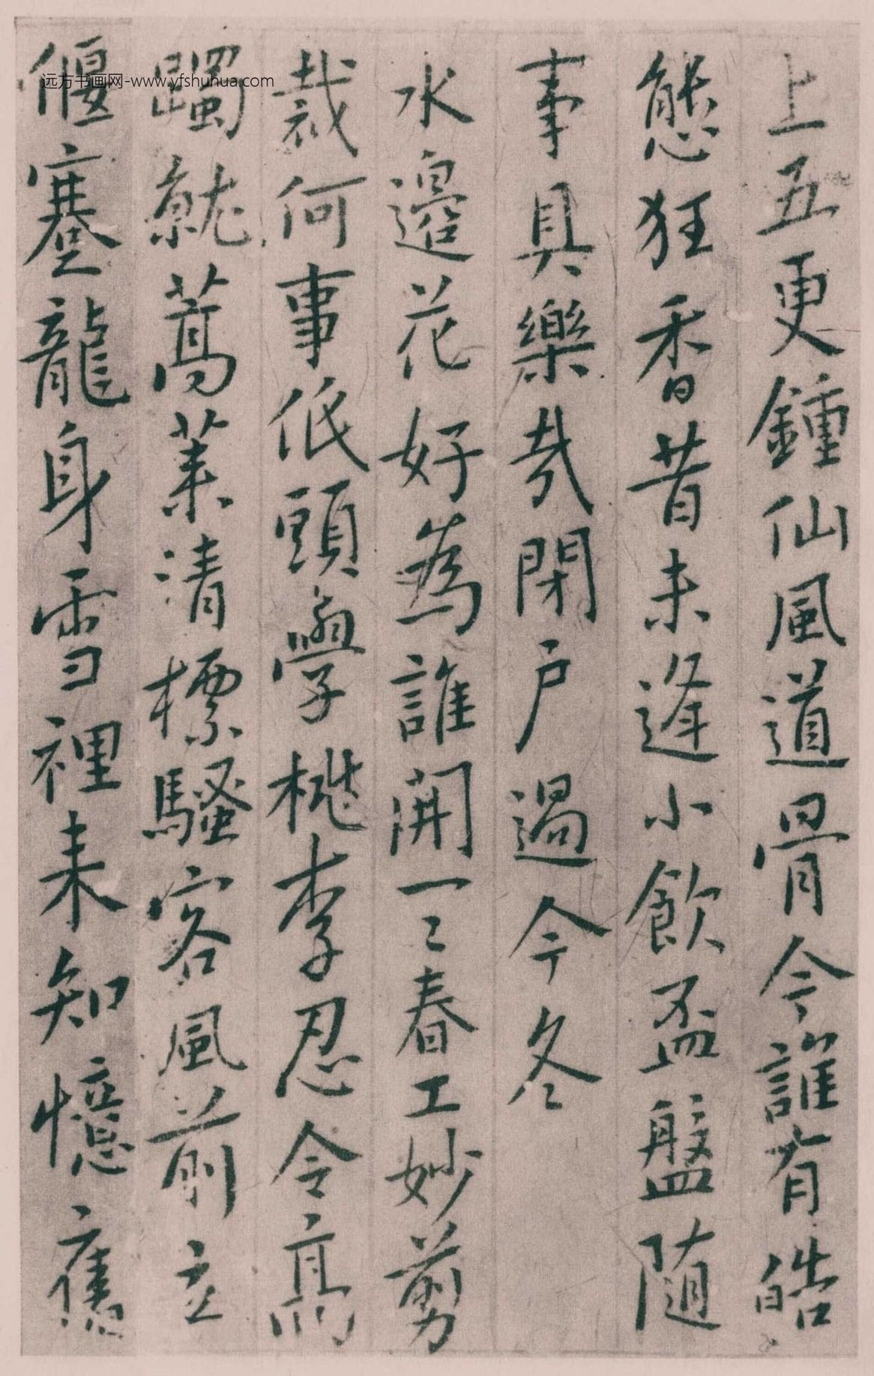 远方书画网-www.yfshuhua.com
上五更鍾仙風道骨今誰有皓
態狂香昔未逢小飲盃盤隨
事具樂哉閉戶過今冬
水邊花好為誰開一一春工妙剪
裁何事低頭學桃李忍令高
躅就蒿萊清標騷客風前立
偃蹇龍身雪裡來知憶舊